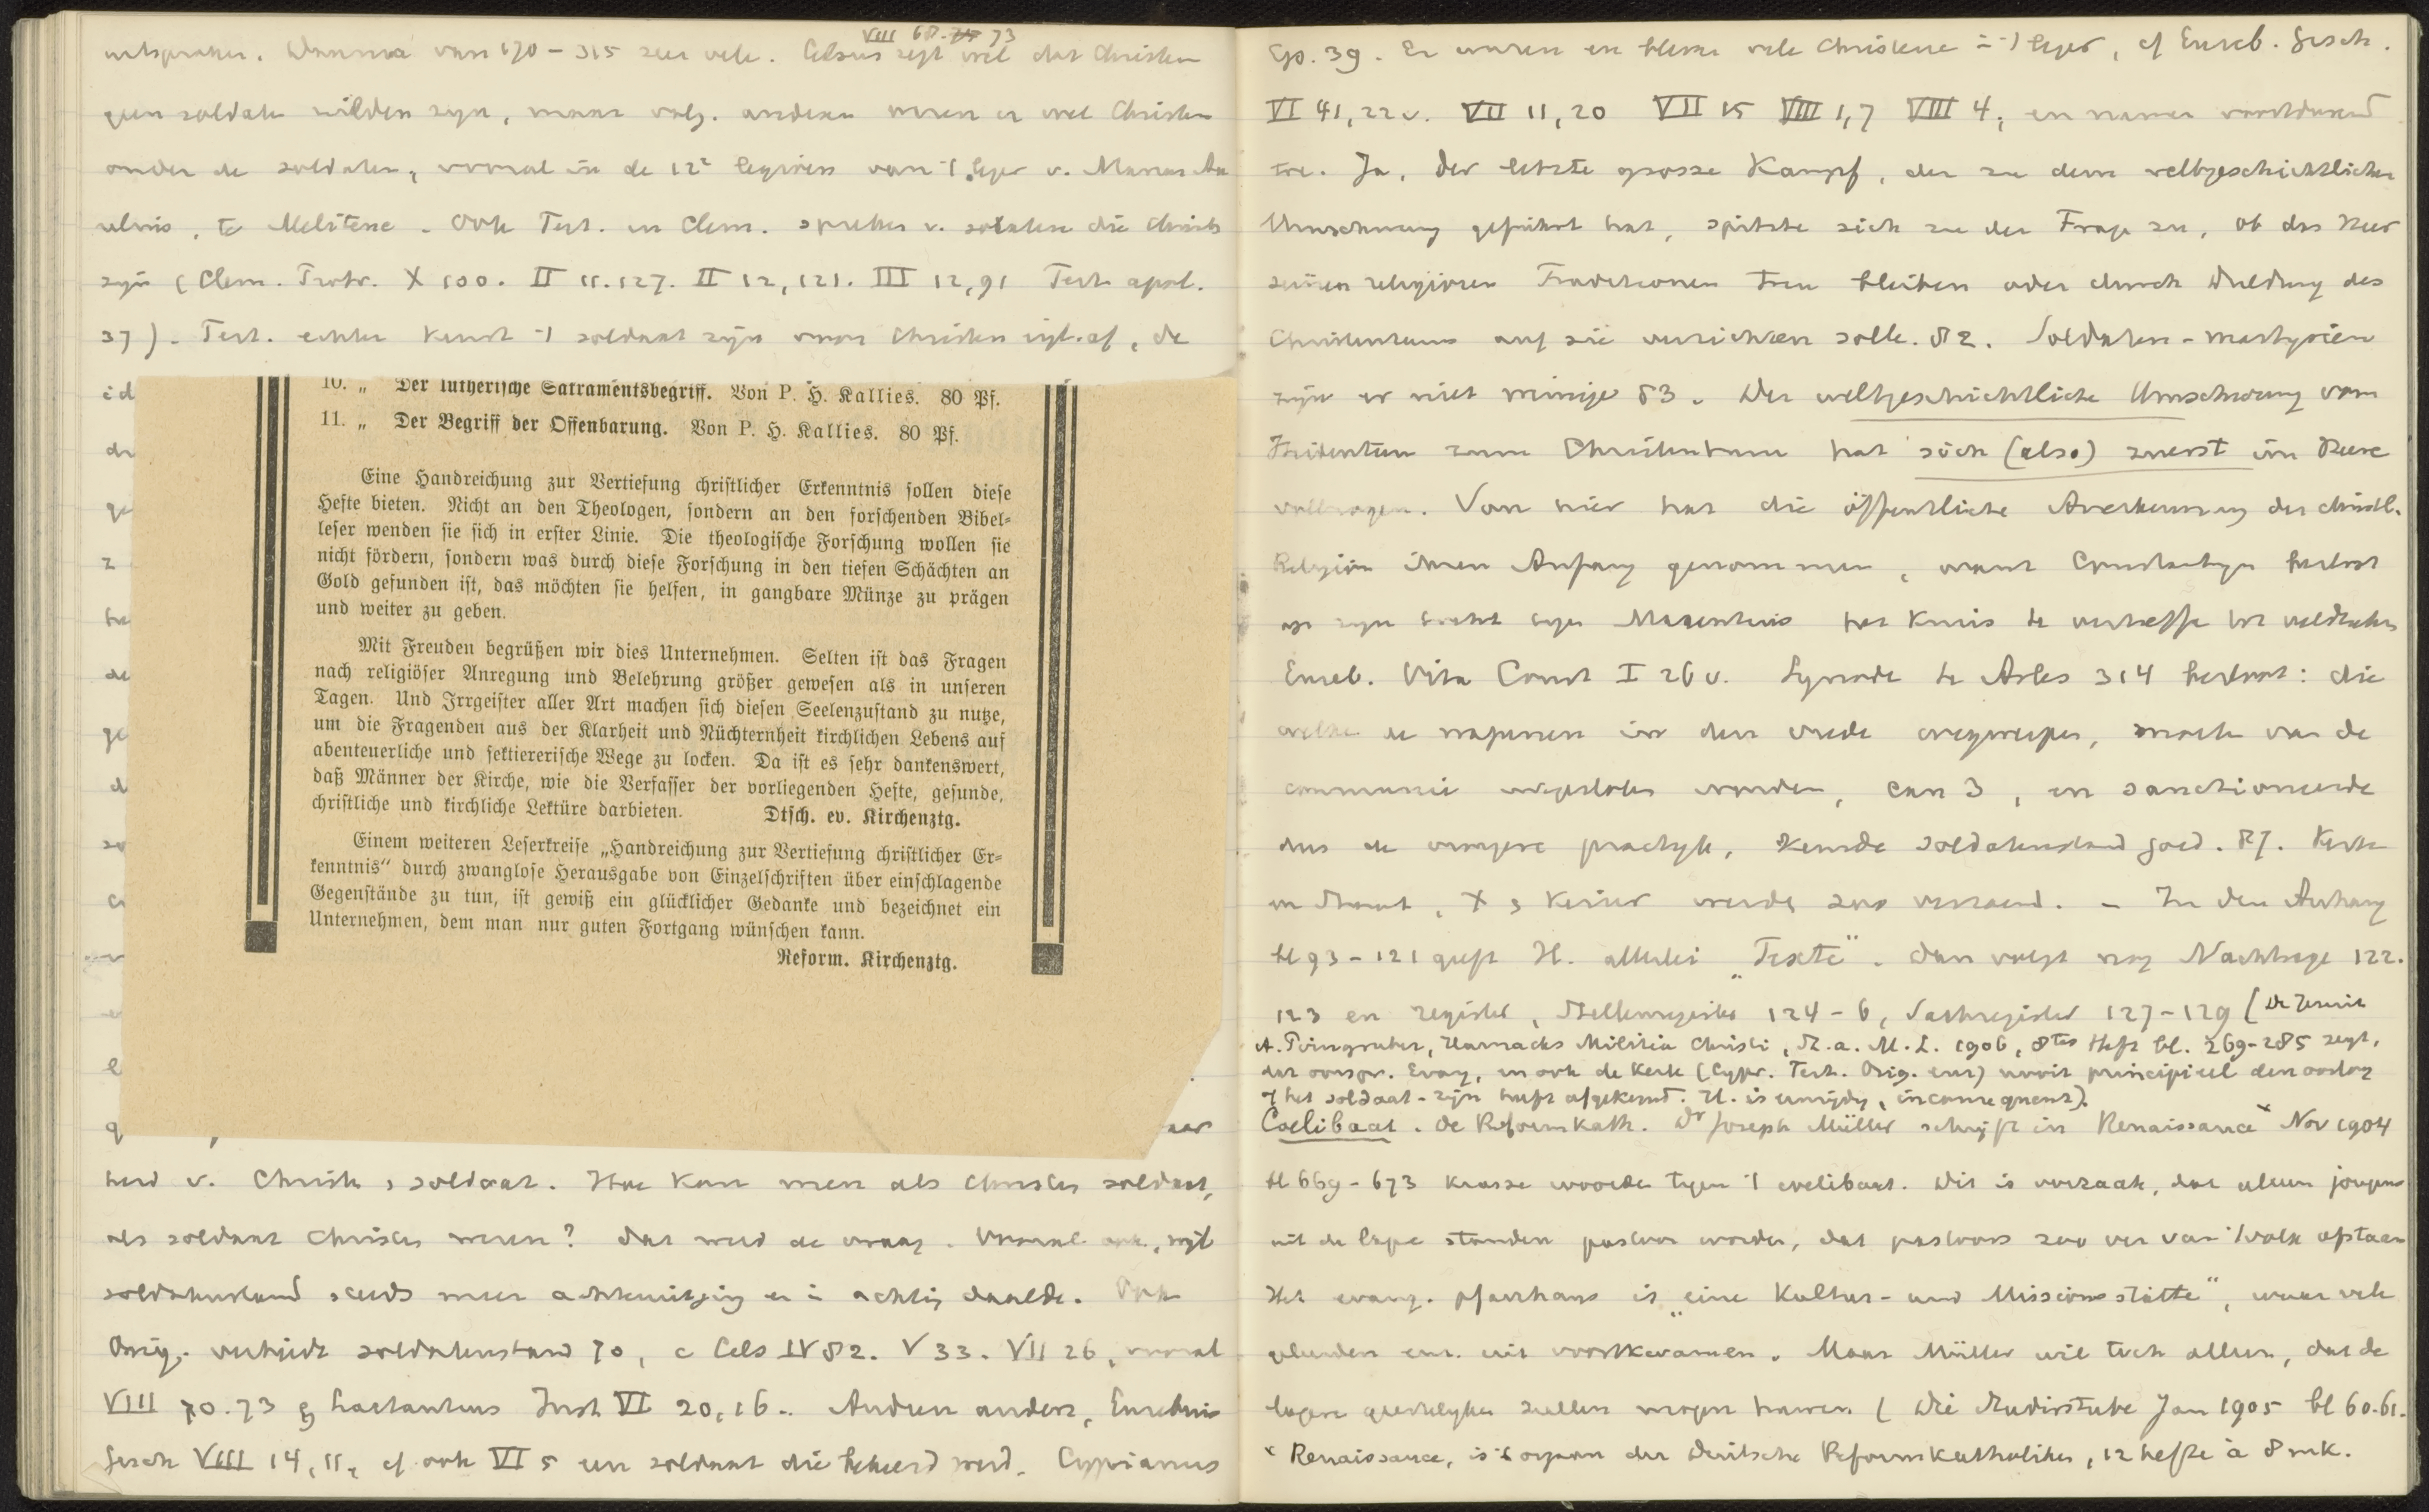 VIII 68. 73
uitspraken. Daarna van 170 – 315 zeer vele. Celsus zegt wel dat Christen
geen soldaten wilden zyn, maar volg. anderen waren er wel Christen
onder de soldaten, vooral in de 12e legioen van 't leger v. Marcus Au
relius, te Melitene. Ook Tert. en Clem. spreken v. soldaten die Christen
zyn (Clem. Protr. X 100. II 11.127. II 12,121. III 12,91 Tert. apol.
37). Tert. echter keurt 't soldaat zyn voor Christen af, de
id
10. „ Der lutherische Sakramentsbegriff. Von P. H. Kallies. 80 Pf.
11. „ Der Begriff der Offenbarung. Von P. H. Kallies. 80 Pf.
Eine Handreichung zur Vertiefung christlicher Erkenntnis sollen diese
Hefte bieten. Nicht an den Theologen, sondern an den forschenden Bibel=
leser wenden sie sich in erster Linie. Die theologische Forschung wollen sie
nicht fördern, sondern was durch diese Forschung in den tiefen Schächten an
Gold gefunden ist, das möchten sie helfen, in gangbare Münze zu prägen
und weiter zu geben.
Mit Freuden begrüßen wir dies Unternehmen. Selten ist das Fragen
nach religiöser Anregung und Belehrung größer gewesen als in unseren
Tagen. Und Irrgeister aller Art machen sich diesen Seelenzustand zu nutze,
um die Fragenden aus der Klarheit und Nüchternheit kirchlichen Lebens auf
abenteuerliche und sektiererische Wege zu locken. Da ist es sehr dankenswert,
daß Männer der Kirche, wie die Verfasser der vorliegenden Hefte, gesunde,
christliche und kirchliche Lektüre darbieten. Dtsch. ev. Kirchenztg.
Einem weiteren Leserkreise „Handreichung zur Vertiefung christlicher Er=
kenntnis“ durch zwanglose Herausgabe von Einzelschriften über einschlagende
Gegenstände zu tun, ist gewiß ein glücklicher Gedanke und bezeichnet ein
Unternehmen, dem man nur guten Fortgang wünschen kann.
Reform. Kirchenztg.
heid v. Christen, soldaat. Hoe kan men als Christen soldaat,
als soldaat Christen wezen? Dat werd de vraag. Vooral ook, wyl
soldatenstand steeds meer achteruitging en in achting daalde. Ook
Orig. verbiedt soldatenstand 70, c Cels IV 82. V 33. VII 26, vooral
VIII 70.73 Lactantius Inst VI 20,16. Andren anders, Eusebius
Gesch VIII 14,11, cf ook VI 5 een soldaat die bekeerd werd. Cyprianus
Ep. 39. Er waren en bleven vele Christenen in 't leger, cf Euseb. Gesch.
VI 41,22v. VII 11,20 VII 15 VIII 1,7 VIII 4, en namen voortdurend
toe. Ja, der letzte grosse Kampf, der zu dem weltgeschichtlichen
Umschwung geführt hat, spitzte sich zu der Frage zu, ob das Heer
seinen religiösen Traditionen treu bleiben oder durch Duldung des
Christentums auf sie verzichten solle. 82. Soldaten-martyriën
zyn er niet weinige 83. Der weltgeschichtliche Umschwung vom
Heidentum zum Christentum hat sich (also) zuerst im Heere
vollzogen. Von hier hat die öffentliche Anerkennung der christl.
Religion ihren Anfang genommen, want Constantyn besloot
op zyn tocht tegen Maxentius het kruis te verheffen tot veldteeken
Euseb. Vita Const I 26v. Synode te Arles 314 besloot: die
welke de wapenen in den vrede wegwerpen, moeten van de
communie uitgesloten worden, can 3, en sanctioneerde
dus de vroegere practyk, keurde soldatenstand goed. 87. Kerk
en Staat, X 3 Keizer werden zoo verzoend. – In den Anhang
bl 93 – 121 geeft H. allerlei „Texte“. Dan volgt nog Nachträge 122.
123 en register, Stellenregister 124 – 6, Sachregister 127 – 129 (De Jezuit
A. Pvingruber, Harnacks Militia Christi, St. a. M. L. 1906, 8tes Heft bl. 269-285 zegt,
dat oorspr. Evang, en ook de Kerk (Cypr. Tert. Orig. enz) nooit principieel den oorlog
of het soldaat-zijn heeft afgekeurd. H. is eenzijdig, inconsequent).
Coelibaat. De Reformkath. Dr Joseph Müller schryft in Renaissance x Nov 1904
bl 669 – 673 krasse woorden tegen 't coelibaat. Dit is oorzaak, dat alleen jongens
uit de lage standen pastoor worden, dat pastoors zoo ver van 't volk afstaan
Het evang. pfarrhaus is „eine Kultur- und Missionsstätte“, waar vele
geleerden enz. uit voortkwamen. Maar Müller wil toch alleen, dat de
lagere geestelyken zullen mogen trouwen (Die Studierstube Jan 1905 bl 60.61.
x Renaissance, is 't orgaan der Deutsche Reformkatholiken, 12 hefte à 8 mk.